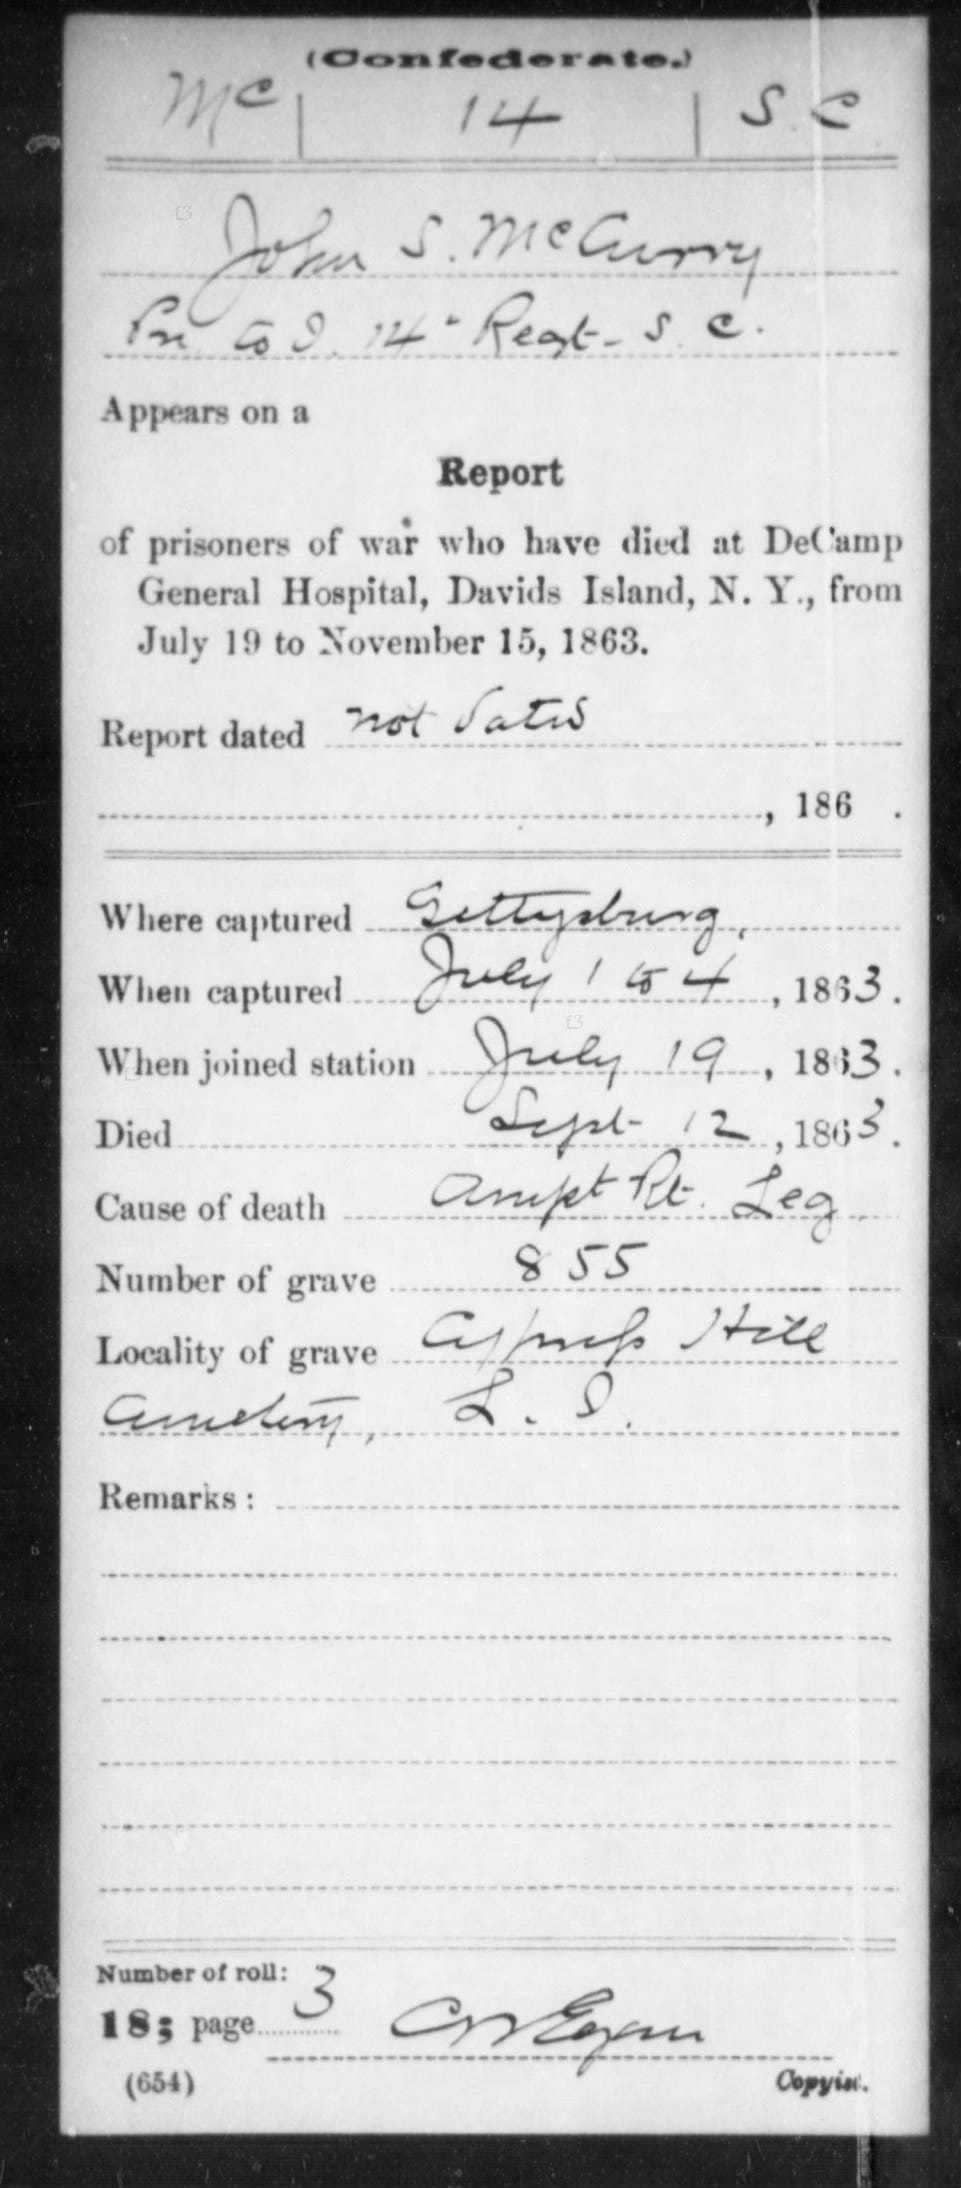 (Confederate.)
Mc 14 S.C.
John S. McCurry
Pri Co I. 14" Regt. S. C.
Appears on a
Report
of prisoners of war who have died at DeCamp
General Hospital, Davids Island, N. Y., from
July 19 to November 15, 1863.
Report dated not dated
, 186 .
Where captured Gettysburg,
When captured July 1 to 4, 1863.
When joined station July 19, 1863.
Died Sept 12, 1863.
Cause of death Ampt Rt. Leg
Number of grave 855
Locality of grave Cypress Hill
Cemetery, L. I.
Remarks:
Number of roll:
18; page 3
(654) Copyist.